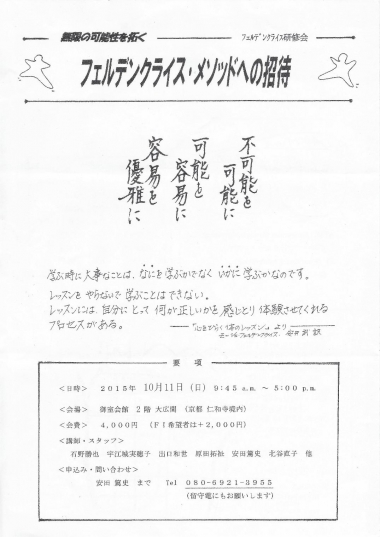 無限の可能性を拓く
フェルデンクライス研修会
フェルデンクライス・メソッドへの招待
不可能を
可能に
可能を
容易に
容易を
優雅に
学ぶ時に大事なことは、なにを学ぶかでなく いかに学ぶかなのです。
レッスンを やらないで 学ぶことはできない。
レッスンには、自分にとって 何が正しいかを 感じとり 体験させてくれる
プロセスがある。
「心をひらく体のレッスン」より
モーシェ・フェルデンクライス 安井武訳
要 項
<日時> 2015年 10月11日 (日) 9:45 a.m. ～ 5:00 p.m.
<会場> 御室会館 2階 大広間 (京都 仁和寺境内)
<会費> 4,000円 (FI希望者は+2,000円)
<講師・スタッフ>
石野勝也 宇江城実穂子 出口和世 原田拓祉 安田篤史 北谷直子 他
<申込み・問い合わせ>
安田 篤史 まで Tel 080-6921-3955
(留守電にもお願いします)